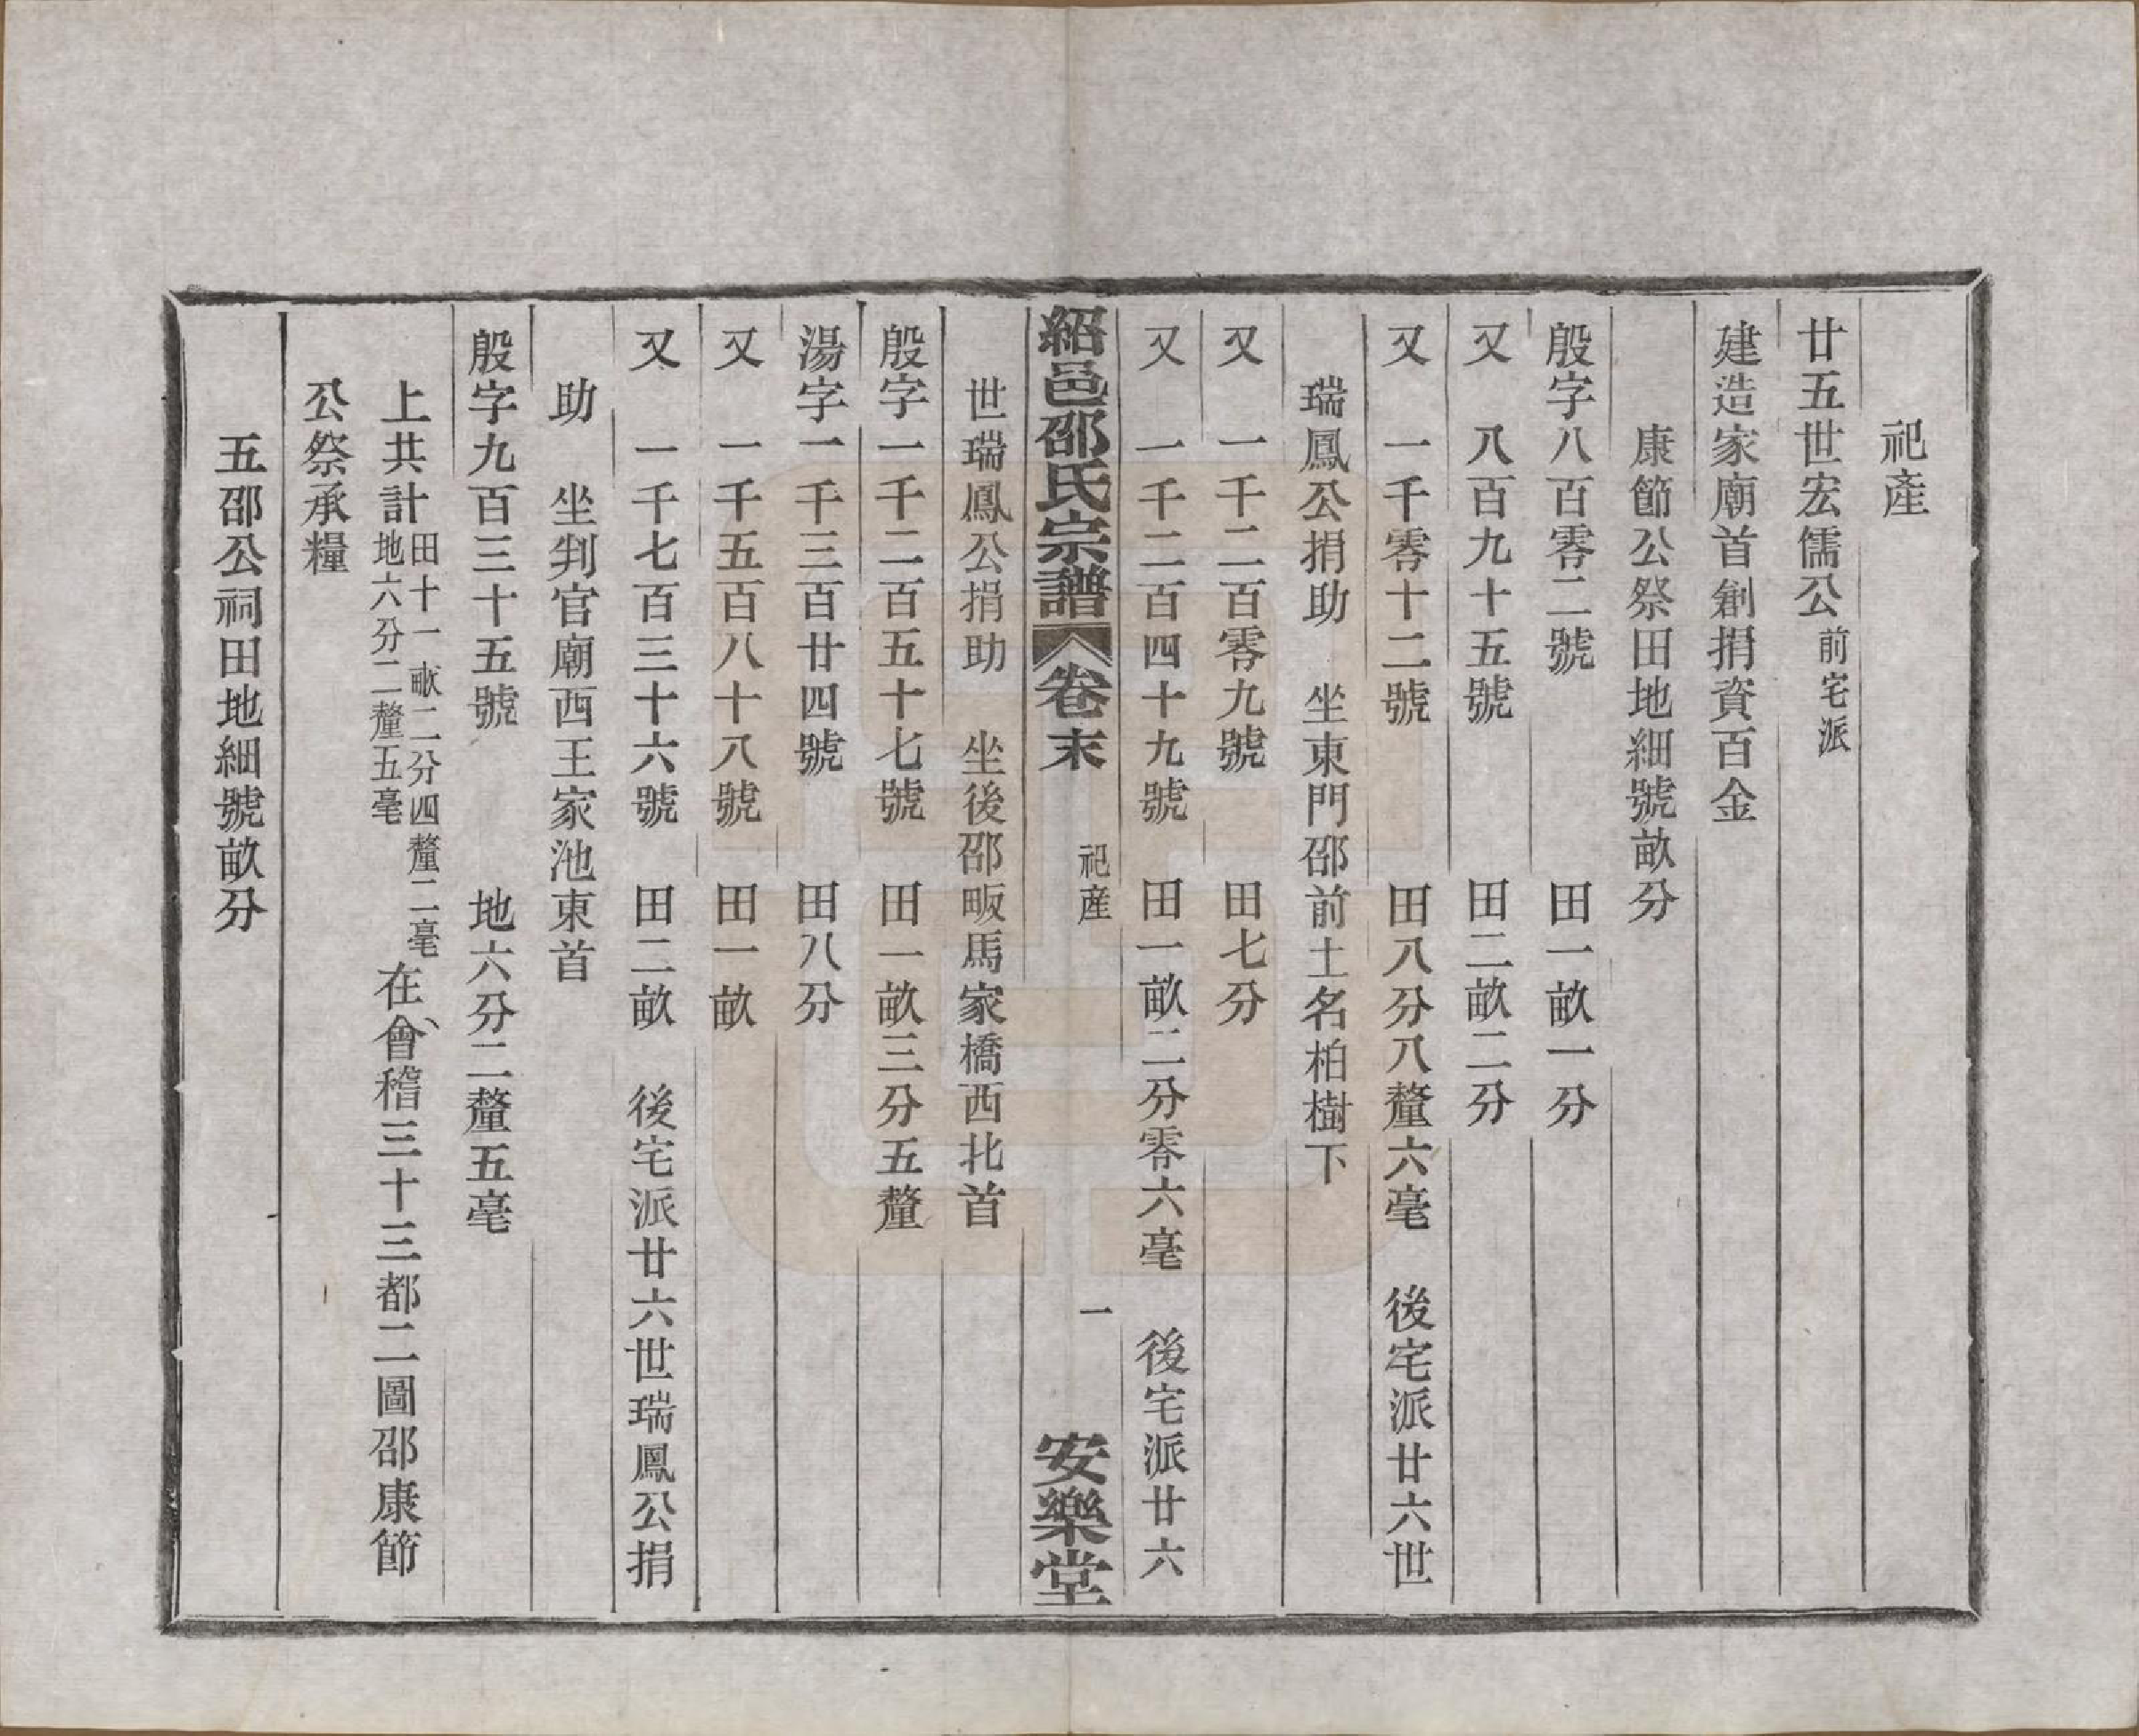 祀產
廿五世宏儒公前宅派
建造家廟首創捐資百金
康節公祭田地細號畝分
殷字八百零二號　田一畝一分
又　八百九十五號　田二畝二分
又　一千零十二號　田八分八釐六毫　後宅派廿六世
瑞鳳公捐助　坐東門邵前土名柏樹下
又　一千二百零九號　田七分
又　一千二百四十九號　田一畝二分零六毫　後宅派廿六
紹邑邵氏宗譜　卷末　祀產　一　安樂堂
世瑞鳳公捐助　坐後邵畈馬家橋西北首
殷字一千二百五十七號　田一畝三分五釐
湯字一千三百廿四號　田八分
又　一千五百八十八號　田一畝
又　一千七百三十六號　田二畝　後宅派廿六世瑞鳳公捐
助　坐判官廟西王家池東首
殷字九百三十五號　地六分二釐五毫
上共計田十一畝二分四釐二毫地六分二釐五毫在會稽三十三都二圖邵康節
公祭承糧
五邵公祠田地細號畝分